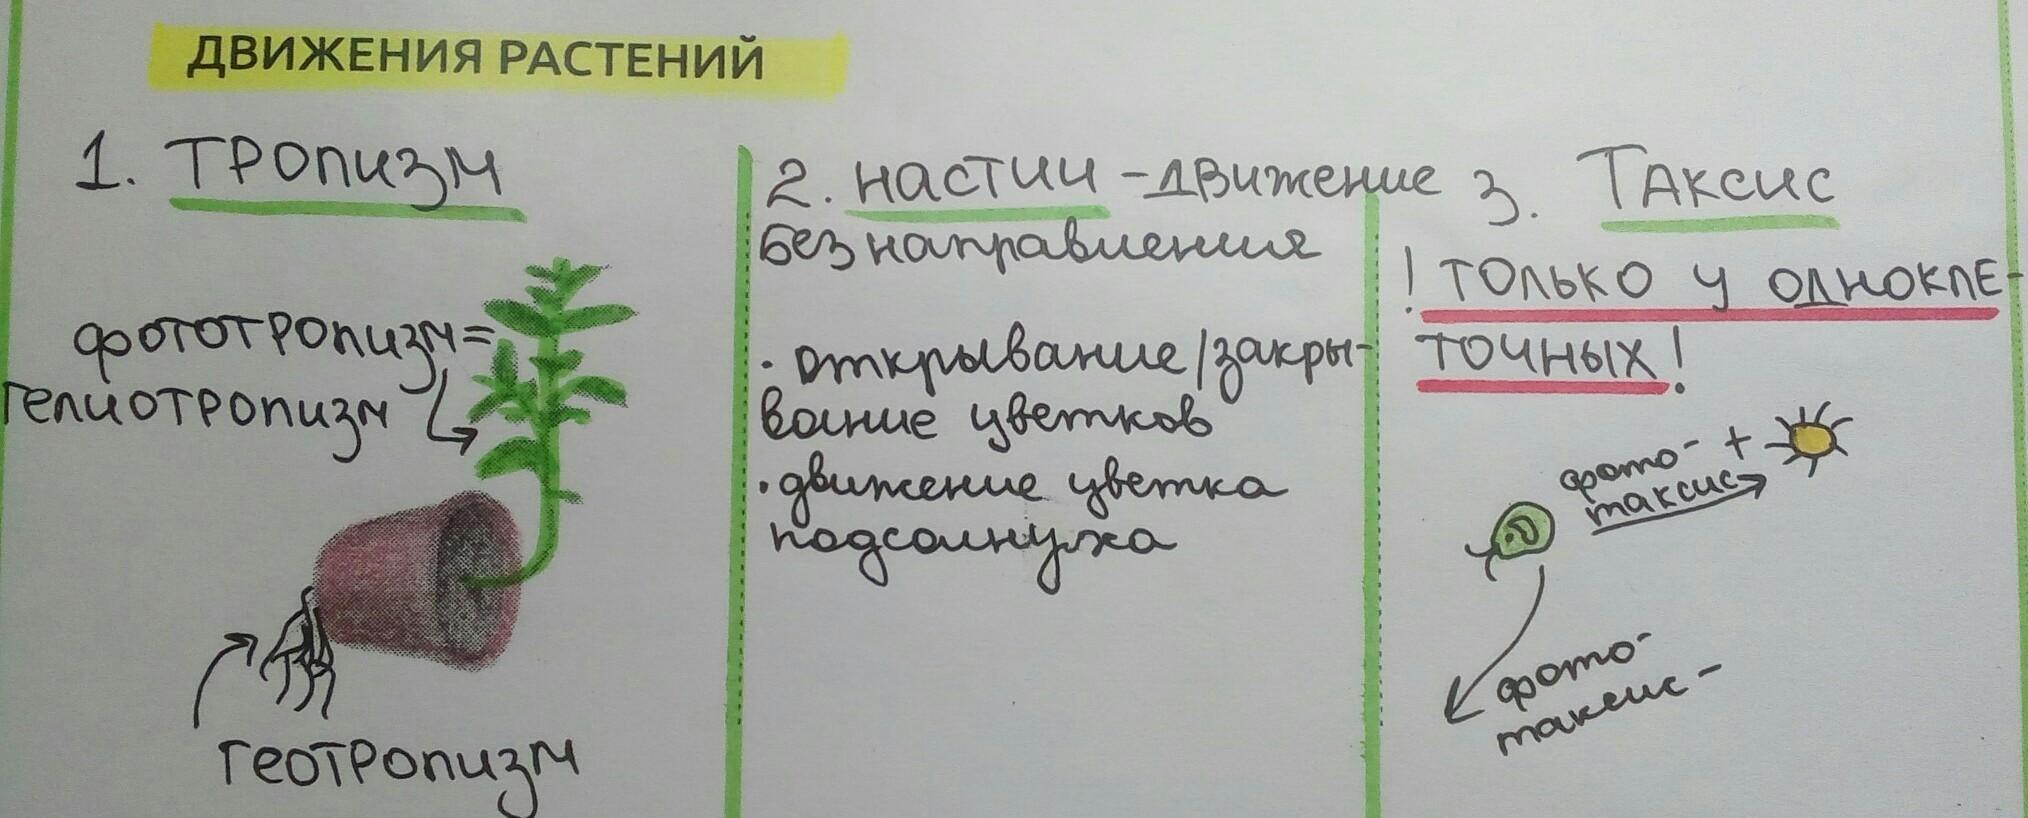 ДВИЖЕНИЯ РАСТЕНИЙ
1. ТРОПИЗМ
фототропизм=
гелиотропизм
геотропизм
2. НАСТИИ - движение
без направления
· открывание/закры-
вание цветков
· движение цветка
подсолнуха
3. ТАКСИС
! ТОЛЬКО У ОДНОКЛЕ-
ТОЧНЫХ!
фото- +
таксис
фото-
таксис -